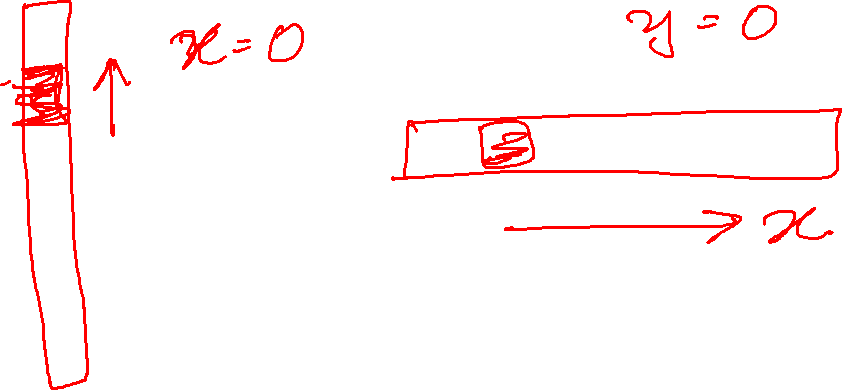 x = 0
y = 0
x